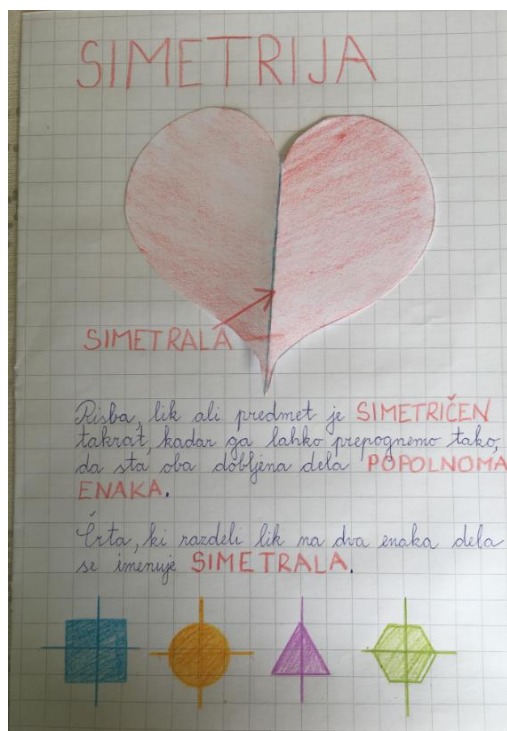 SIMETRIJA
SIMETRALA
Risba, lik ali predmet je SIMETRIČEN
takrat, kadar ga lahko prepognemo tako,
da sta oba dobljena dela POPOLNOMA
ENAKA.
Črta, ki razdeli lik na dva enaka dela
se imenuje SIMETRALA.